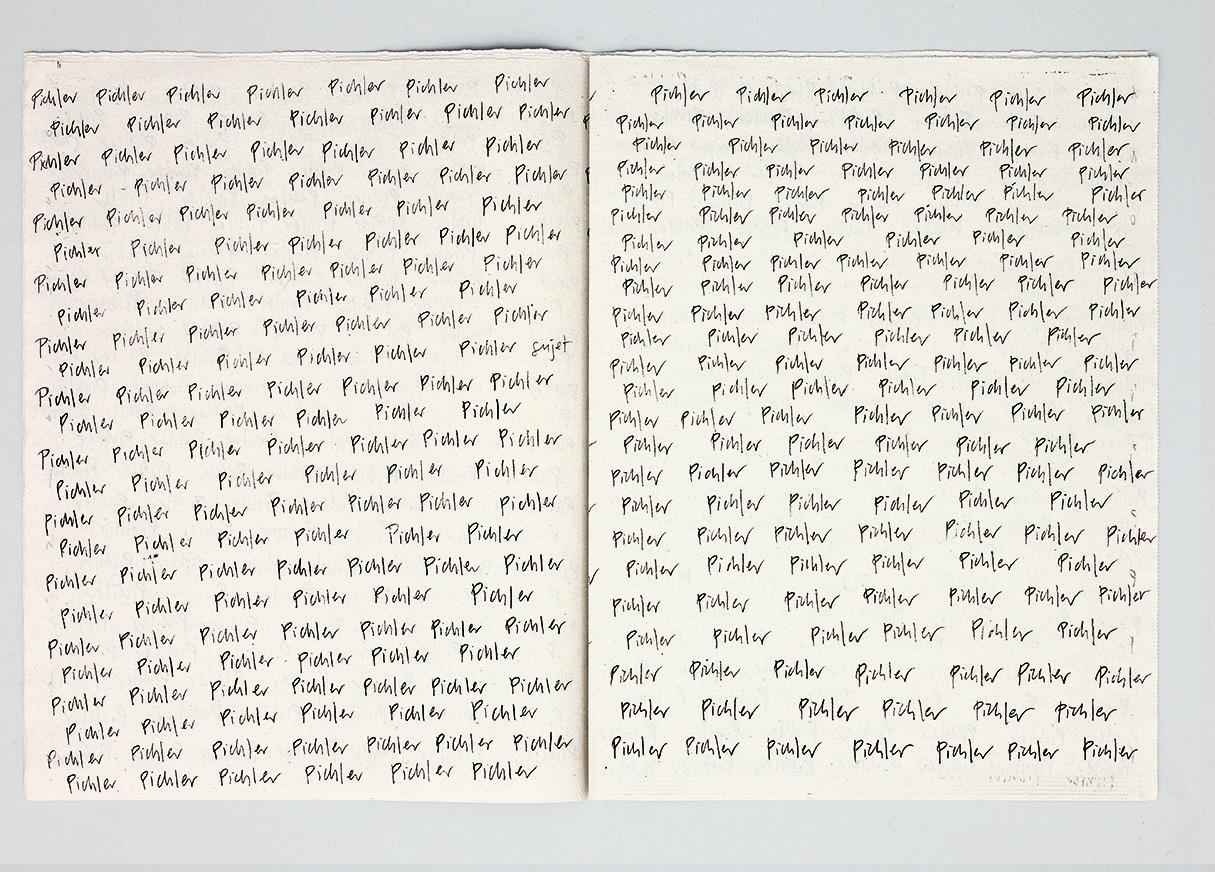 Pichler Pichler Pichler Pichler Pichler Pichler Pichler
Pichler Pichler Pichler Pichler Pichler Pichler Pichler
Pichler Pichler Pichler Pichler Pichler Pichler Pichler
Pichler Pichler Pichler Pichler Pichler Pichler Pichler
Pichler Pichler Pichler Pichler Pichler Pichler Pichler
Pichler Pichler Pichler Pichler Pichler Pichler Pichler
Pichler Pichler Pichler Pichler Pichler Pichler Pichler
Pichler Pichler Pichler Pichler Pichler Pichler
Pichler Pichler Pichler Pichler Pichler Pichler Pichler
Pichler Pichler Pichler Pichler Pichler Pichler sujet
Pichler Pichler Pichler Pichler Pichler Pichler Pichler
Pichler Pichler Pichler Pichler Pichler Pichler
Pichler Pichler Pichler Pichler Pichler Pichler Pichler
Pichler Pichler Pichler Pichler Pichler Pichler
Pichler Pichler Pichler Pichler Pichler Pichler Pichler
Pichler Pichler Pichler Pichler Pichler Pichler
Pichler Pichler Pichler Pichler Pichler Pichler Pichler
Pichler Pichler Pichler Pichler Pichler Pichler
Pichler Pichler Pichler Pichler Pichler Pichler Pichler
Pichler Pichler Pichler Pichler Pichler Pichler
Pichler Pichler Pichler Pichler Pichler Pichler Pichler
Pichler Pichler Pichler Pichler Pichler Pichler
Pichler Pichler Pichler Pichler Pichler Pichler Pichler
Pichler Pichler Pichler Pichler Pichler Pichler
Pichler Pichler Pichler Pichler Pichler Pichler
Pichler Pichler Pichler Pichler Pichler Pichler Pichler
Pichler Pichler Pichler Pichler Pichler Pichler
Pichler Pichler Pichler Pichler Pichler Pichler Pichler
Pichler Pichler Pichler Pichler Pichler Pichler Pichler
Pichler Pichler Pichler Pichler Pichler Pichler Pichler
Pichler Pichler Pichler Pichler Pichler Pichler
Pichler Pichler Pichler Pichler Pichler Pichler Pichler
Pichler Pichler Pichler Pichler Pichler Pichler Pichler
Pichler Pichler Pichler Pichler Pichler Pichler Pichler
Pichler Pichler Pichler Pichler Pichler Pichler
Pichler Pichler Pichler Pichler Pichler Pichler Pichler
Pichler Pichler Pichler Pichler Pichler Pichler
Pichler Pichler Pichler Pichler Pichler Pichler Pichler
Pichler Pichler Pichler Pichler Pichler Pichler
Pichler Pichler Pichler Pichler Pichler Pichler Pichler
Pichler Pichler Pichler Pichler Pichler Pichler
Pichler Pichler Pichler Pichler Pichler Pichler Pichler
Pichler Pichler Pichler Pichler Pichler Pichler
Pichler Pichler Pichler Pichler Pichler Pichler Pichler
Pichler Pichler Pichler Pichler Pichler Pichler
Pichler Pichler Pichler Pichler Pichler Pichler Pichler
Pichler Pichler Pichler Pichler Pichler Pichler
Pichler Pichler Pichler Pichler Pichler Pichler Pichler